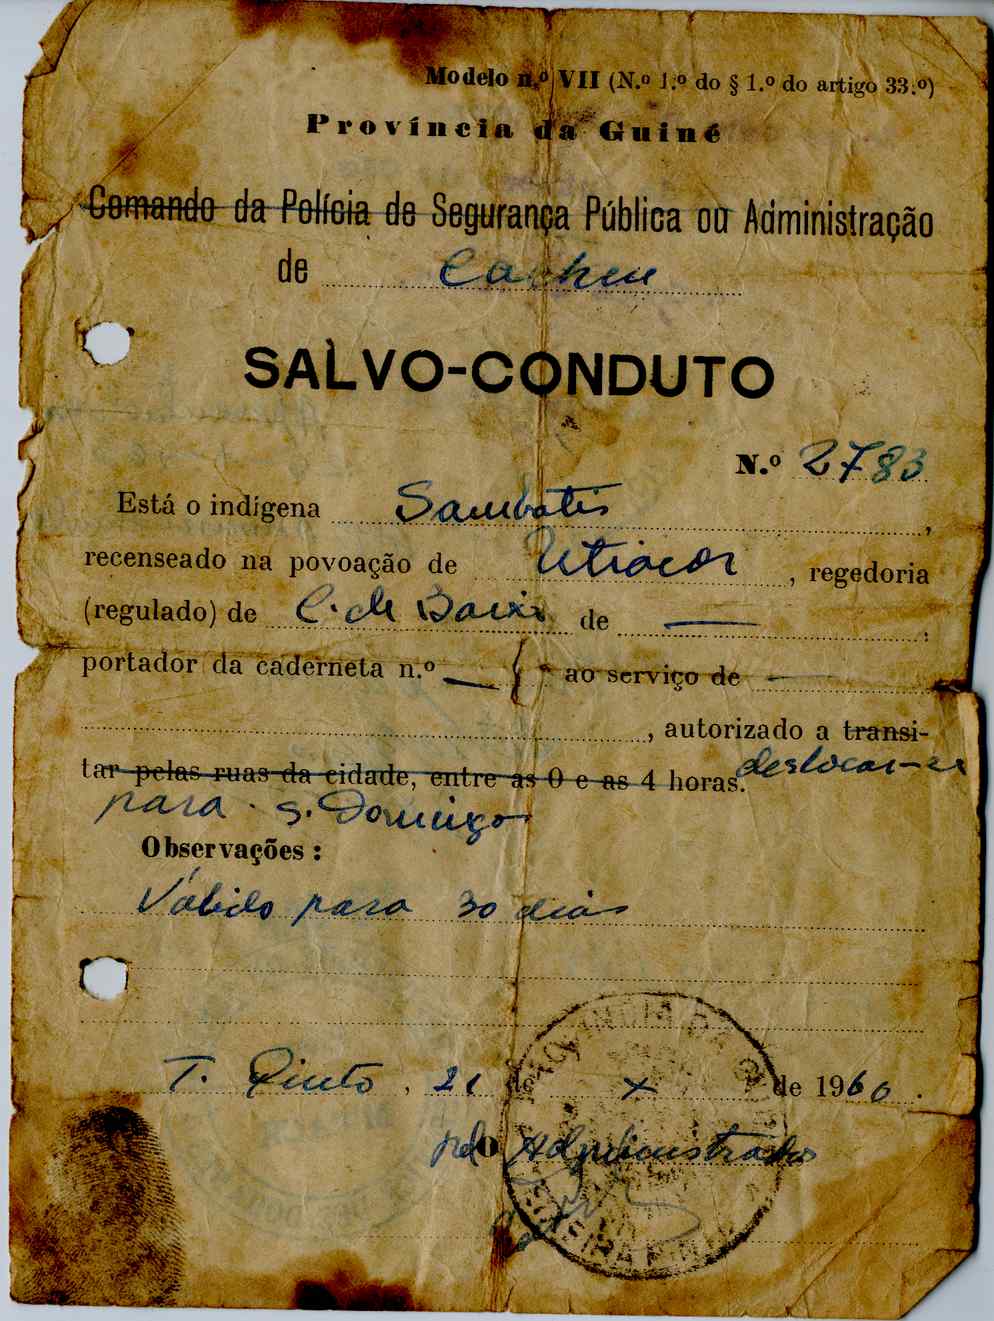 Modelo n.º VII (N.º 1.º do § 1.º do artigo 33.º)
Província da Guiné
Comando da Polícia de Segurança Pública ou Administração
de Cacheu
SALVO-CONDUTO
N.º 2783
Está o indígena Sambatis,
recenseado na povoação de, regedoria
(regulado) de C. de Baixo de —.
portador da caderneta n.º — ao serviço de —
, autorizado a transi-
tar pelas ruas da cidade, entre as 0 e as 4 horas. deslocar-se
para S. Domingo
Observações:
Válido para 30 dias
T. Pinto, 21 de X de 1960.
pelo Administrador
PROVÍNCIA DA GUINÉ
TEIXEIRA PINTO